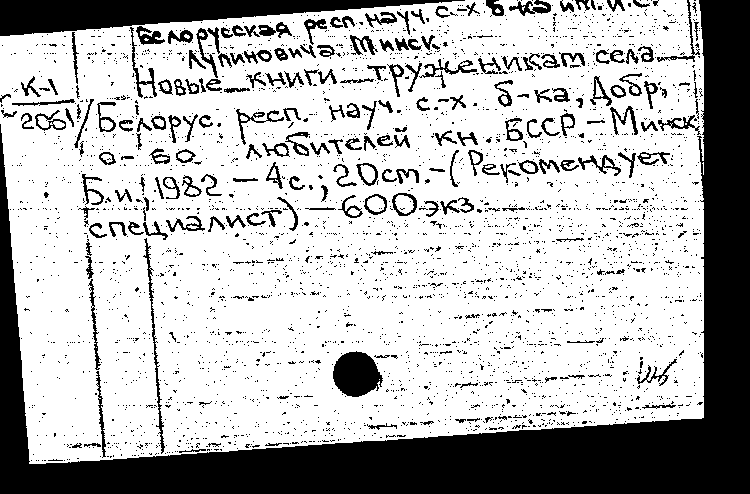 Белорусская респ. науч. с.-х б-ка им. И.С.
Лупиновича. Минск.
Новые книги труженикам села
К-1
2061
/Белорус. респ. науч. с.-х. б-ка, Добр. -
о-во любителей кн. БССР.-Минск
Б.и., 1982.-4с.; 20см.-(Рекомендует
специалист).-600экз.